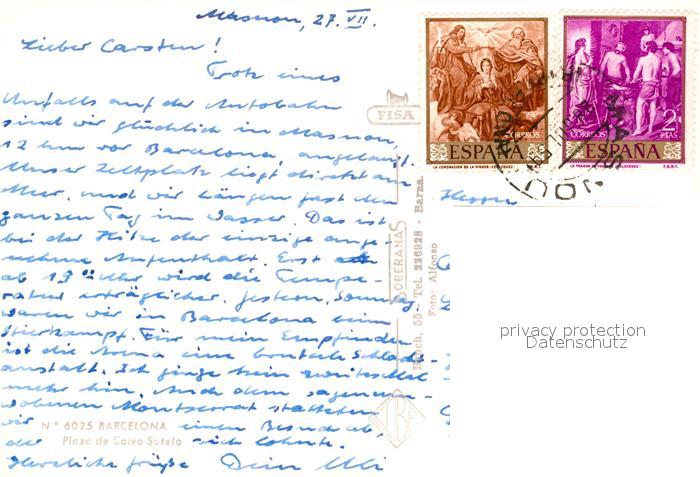 Masnou, 27. VII.
Lieber Carsten!
Trotz eines
Unfalls auf der Autobahn
sind wir glücklich in Masnou,
12 km vor Barcelona, angelangt.
Unser Zeltplatz liegt direkt am
Meer, und wir hängen fast den
ganzen Tag im Wasser. Das ist
bei der Hitze der einzige ange-
nehme Aufenthalt. Erst
ab 19 Uhr wird die Tempe-
ratur erträglicher. Gestern, Sonntag
waren wir in Barcelona beim
Stierkampf. Für mein Empfinden
ist die Arena eine brutale Schlacht-
anstalt. Ich ginge kein zweites Mal
mehr hin. Auch dem sagenum-
wobenen Montserrat statteten
wir einen Besuch ab,
der sich lohnte.
Herzliche Grüße Dein Uli
N.º 6025 BARCELONA
Plaza de Calvo Sotelo
FISA
SOBERANAS
58 - Tel. 226928 - Barna.
Foto: Alfonso
CORREOS
ESPAÑA
LA CORONACION DE LA VIRGEN (VELAZQUEZ)
2
PTAS
CORREOS
ESPAÑA
LA FRAGUA DE VULCANO (VELAZQUEZ)
F.N.M.T.
Herrn
privacy protection
Datenschutz